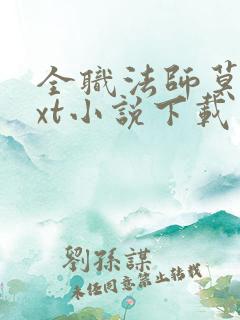 全職法師莫
xt小說下載
劉孫謀
未任同意禁止轉載